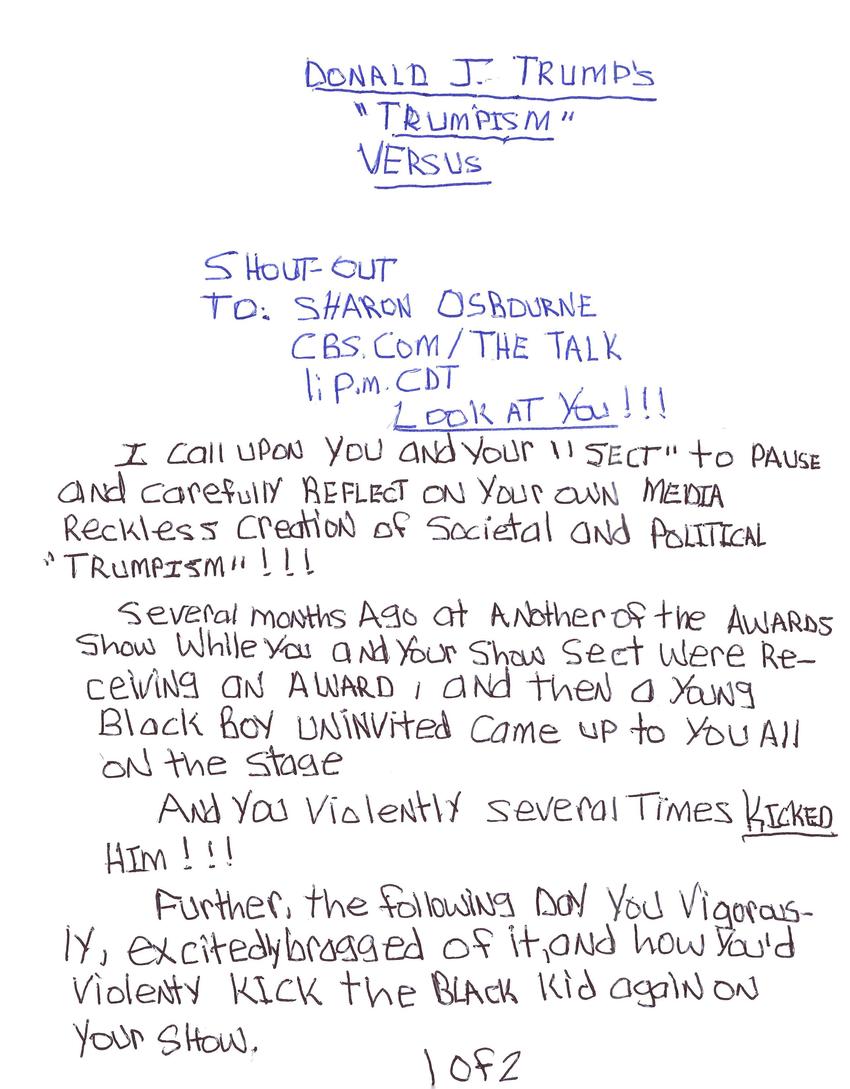 DONALD J. TRUMP'S
"TRUMPISM"
VERSUS
SHOUT-OUT
TO: SHARON OSBOURNE
CBS.COM/THE TALK
1; P.M. CDT
LOOK AT YOU!!!
I CALL UPON YOU AND YOUR "SECT" to PAUSE
AND CAREFULLY REFLECT ON YOUR OWN MEDIA
RECKLESS CREATION OF SOCIETAL AND POLITICAL
"TRUMPISM"!!!
Several months Ago at Another of the AWARDS
Show While you and Your Show Sect Were Re-
ceiving an AWARD, and then a Young
Black Boy UNINVITED Came UP to You All
ON the Stage
And You Violently several Times KICKED
HIM!!!
Further, the following Day You Vigorous-
ly, excitedly bragged of it, and how You'd
Violenty KICK the BLACK Kid again on
Your SHOW.
1 of 2